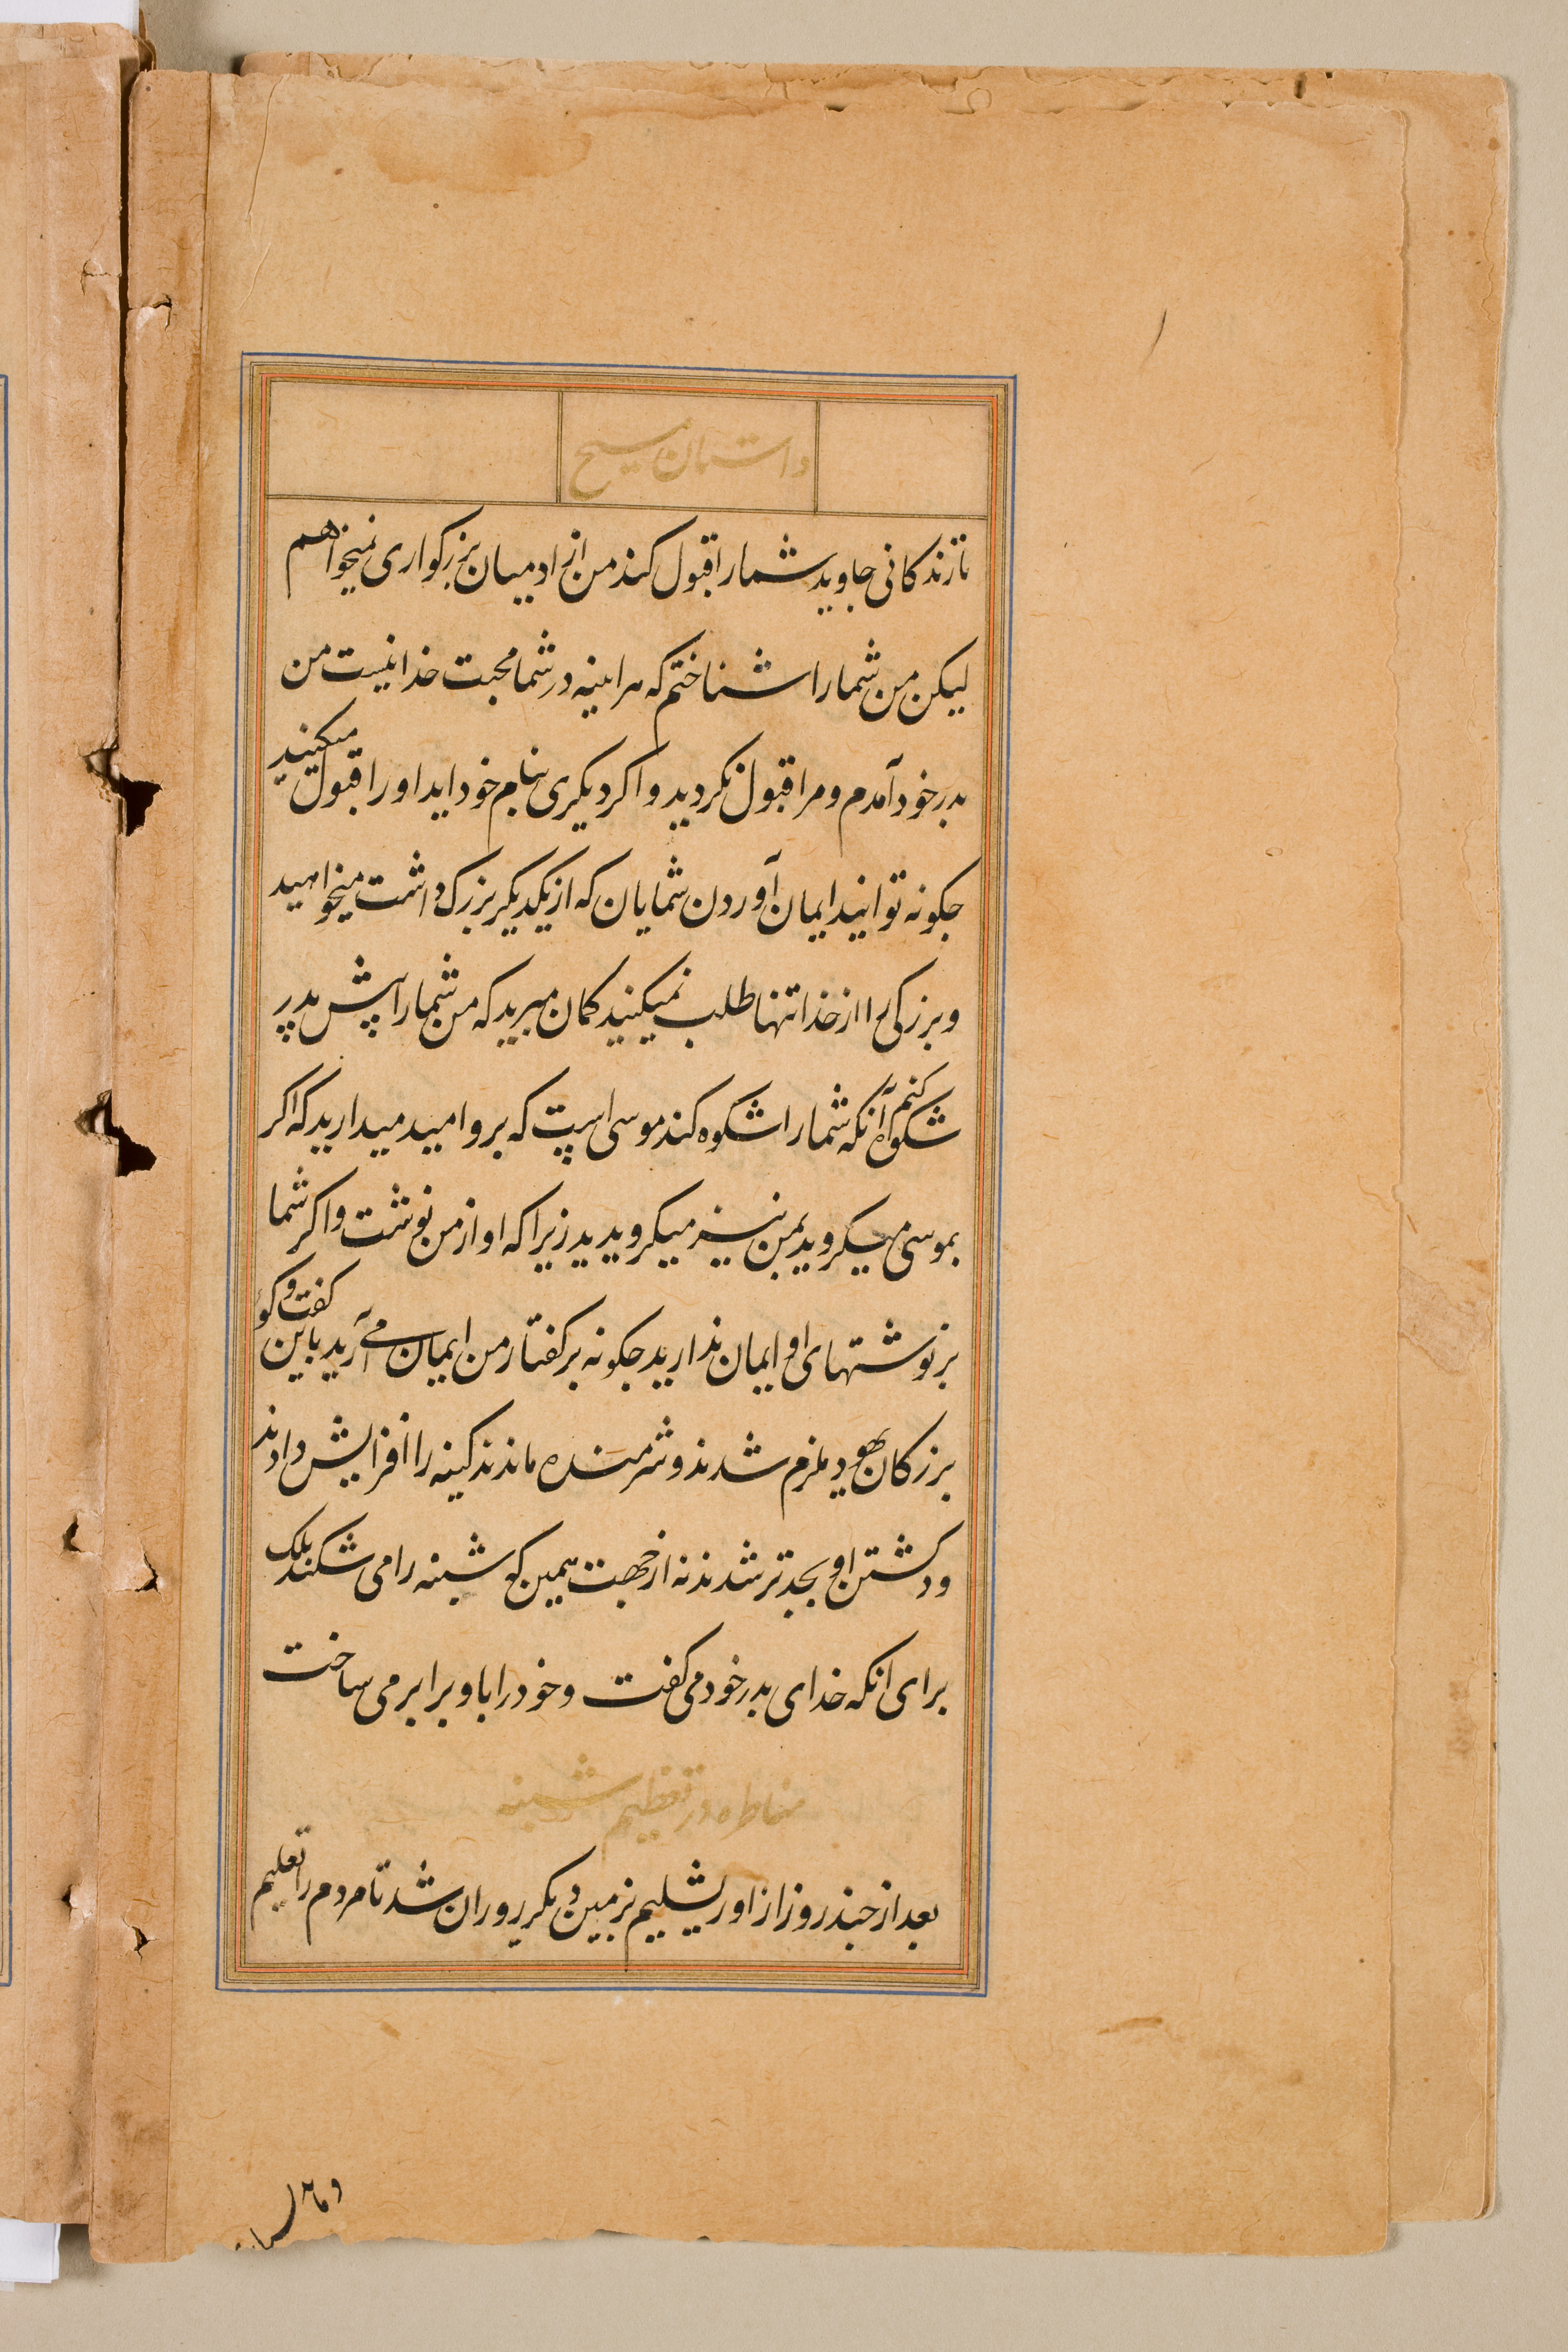 داستان مسیح
تا زندکانی جاوید شما را قبول کند من از ادمیان بزرکواری نمیخواهم
لیکن من شما را شناختم که هراینه در شما محبت خدا نیست من
بدر خود آمدم و مرا قبول نکردید و اکر دیکری بنام خود اید او را قبول میکنید
جکونه توانید ایمان آوردن شمایان که از یکدیکر بزرک داشت میخواهید
و بزرکی را از خدا تنها طلب نمیکنید کمان مبرید که من شما را پیش پدر
شکوه کنم آنکه شما را شکوه کند موسی است که برو امید میدارید که اکر
بموسی میکروید بمن نیز میکرویدید زیرا که او از من نوشت و اکر شما
بر نوشتهای او ایمان ندارید جکونه بر کفتار من ایمان می آرید باین کفت و کو
بزرکان یهود ملزم شدند و شرمنده ماندند کینه را افزایش دادند
و در کشتن او بجدتر شدند نه از جهت همین که شنبه را می شکند بلک
برای انکه خدای بدر خود می کفت و خود را با او برابر می ساخت
مخاطره در تعظیم شنبه
بعد از جند روز از اورشلیم بزمین دیکر روان شد تا مردم را تعلیم